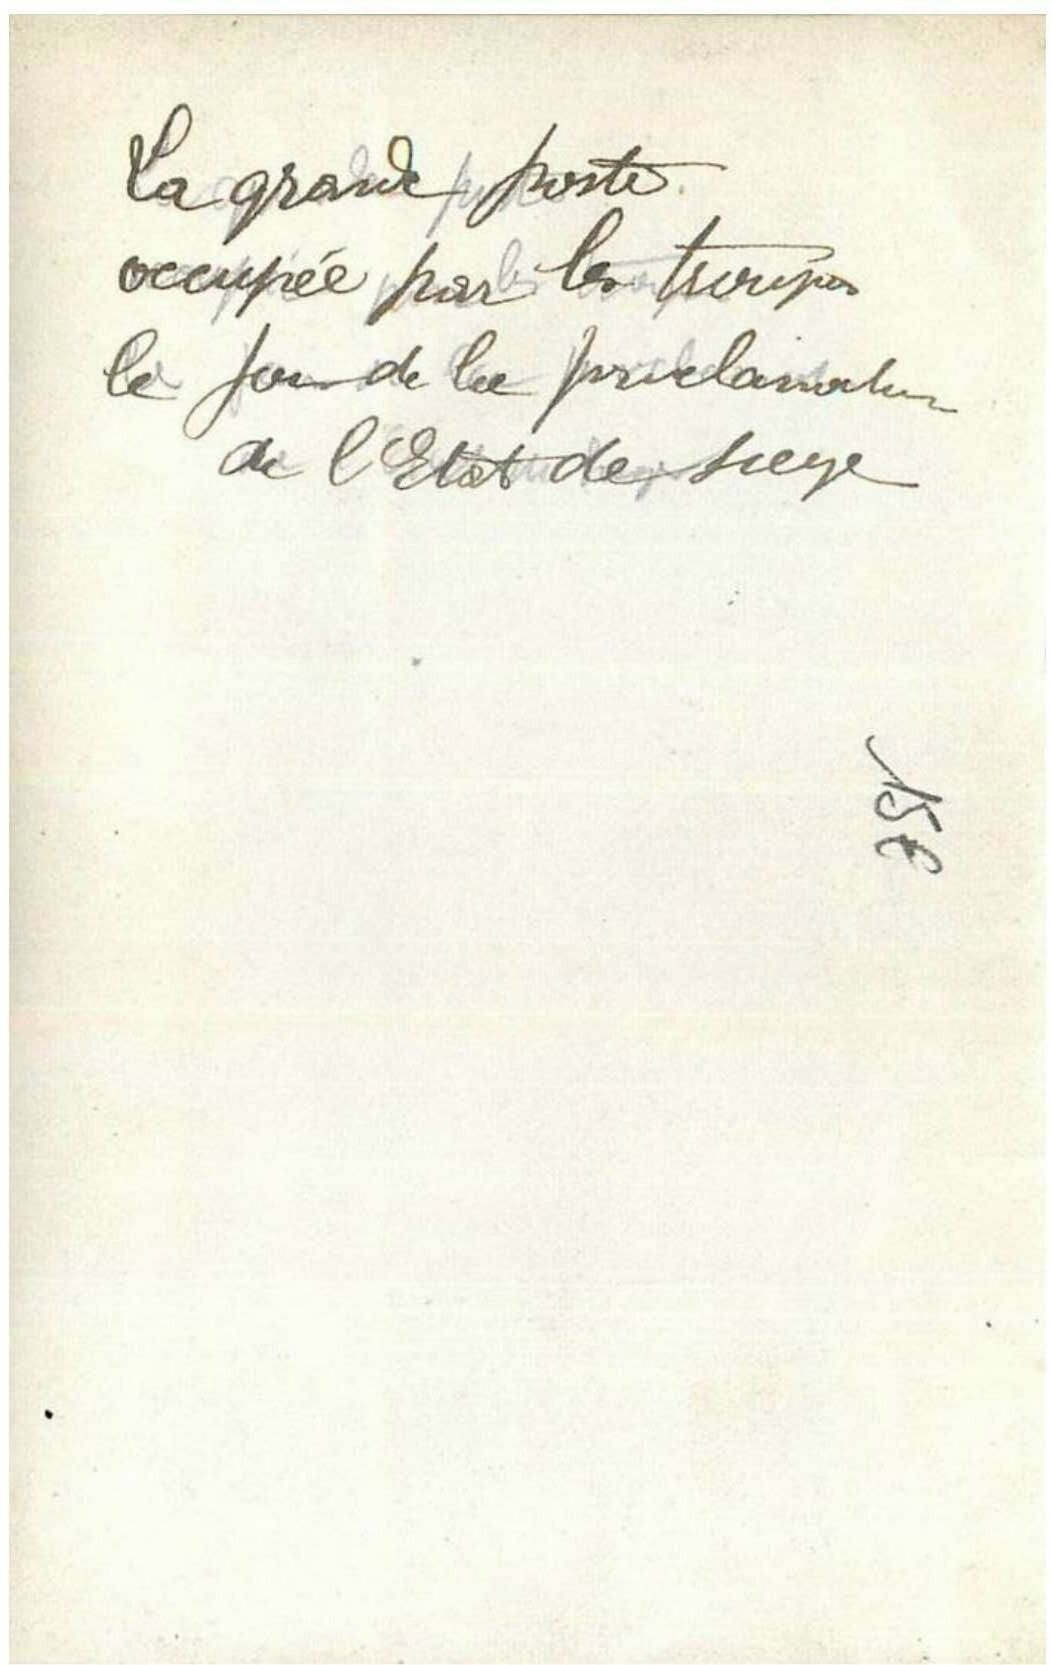 La grande poste.
occupée par les troupes
le jour de la proclamation
de l'Etat de siege